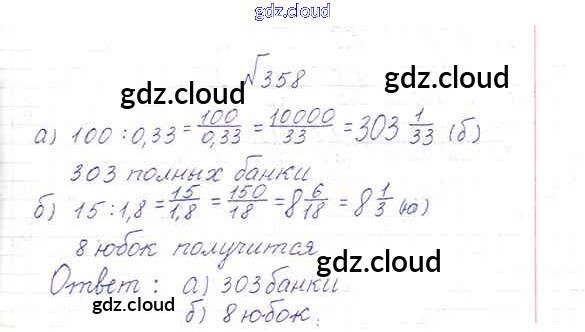 gdz.cloud
№358
gdz.cloud
gdz.cloud
а) 100 : 0,33 = 100/0,33 = 10000/33 = 303 1/33 (б)
303 полных банки
gdz.cloud
б) 15 : 1,8 = 15/1,8 = 150/18 = 8 6/18 = 8 1/3 (ю)
8 юбок получится
gdz.cloud
Ответ: а) 303 банки
gdz.cloud
б) 8 юбок.
gdz.cloud